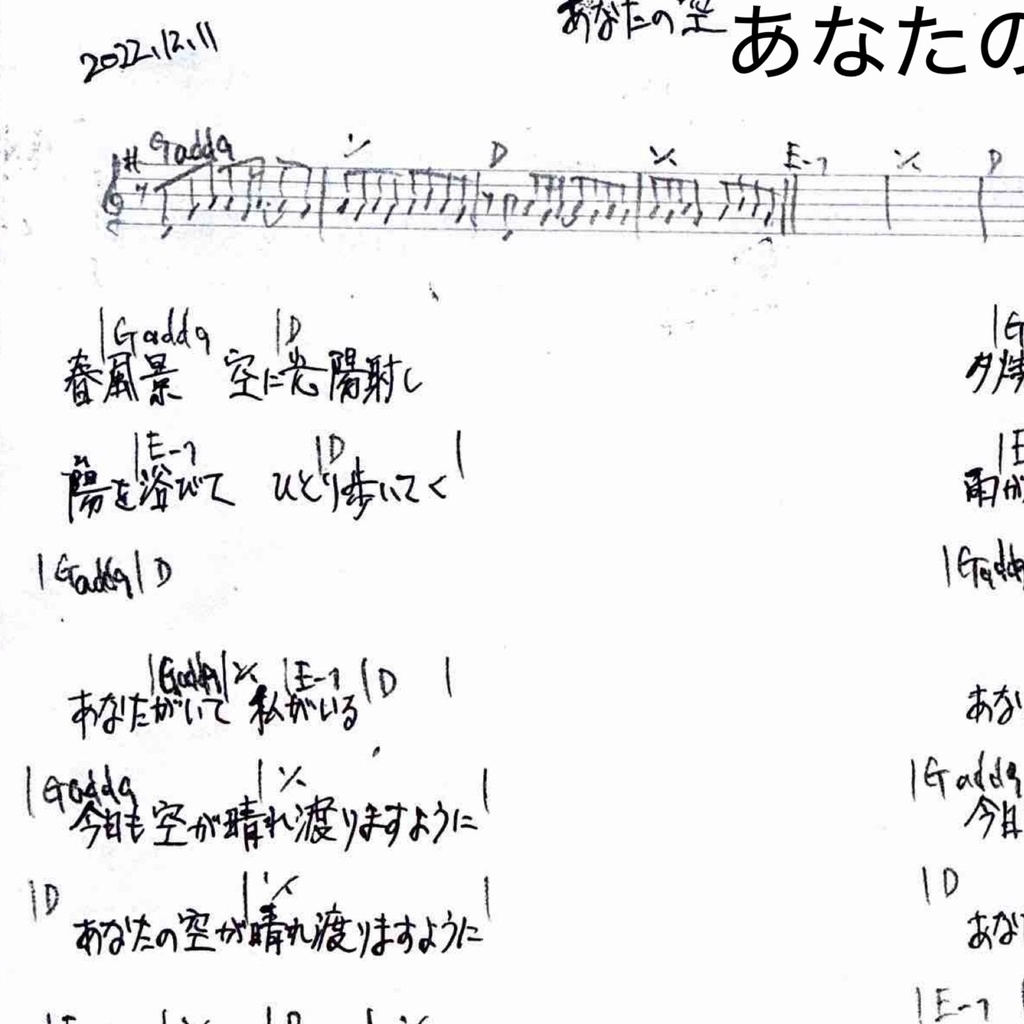 あなたの空
あなたの
2022.12.11
Gadd9 ٪ D ٪ E-7 ٪ D
|Gadd9 |D
春風景 空に光陽射し
|E-7 |D |
陽を浴びて ひとり歩いてく
|Gadd9|D
|Gadd9|٪ |E-7 |D |
あなたがいて 私がいる
|Gadd9 |٪ |
今日も空が晴れ渡りますように
|D |٪ |
あなたの空が晴れ渡りますように
|G
夕焼
|E
雨が
|Gadd9
あな
|Gadd9
今日
|D
あな
|E-7 |